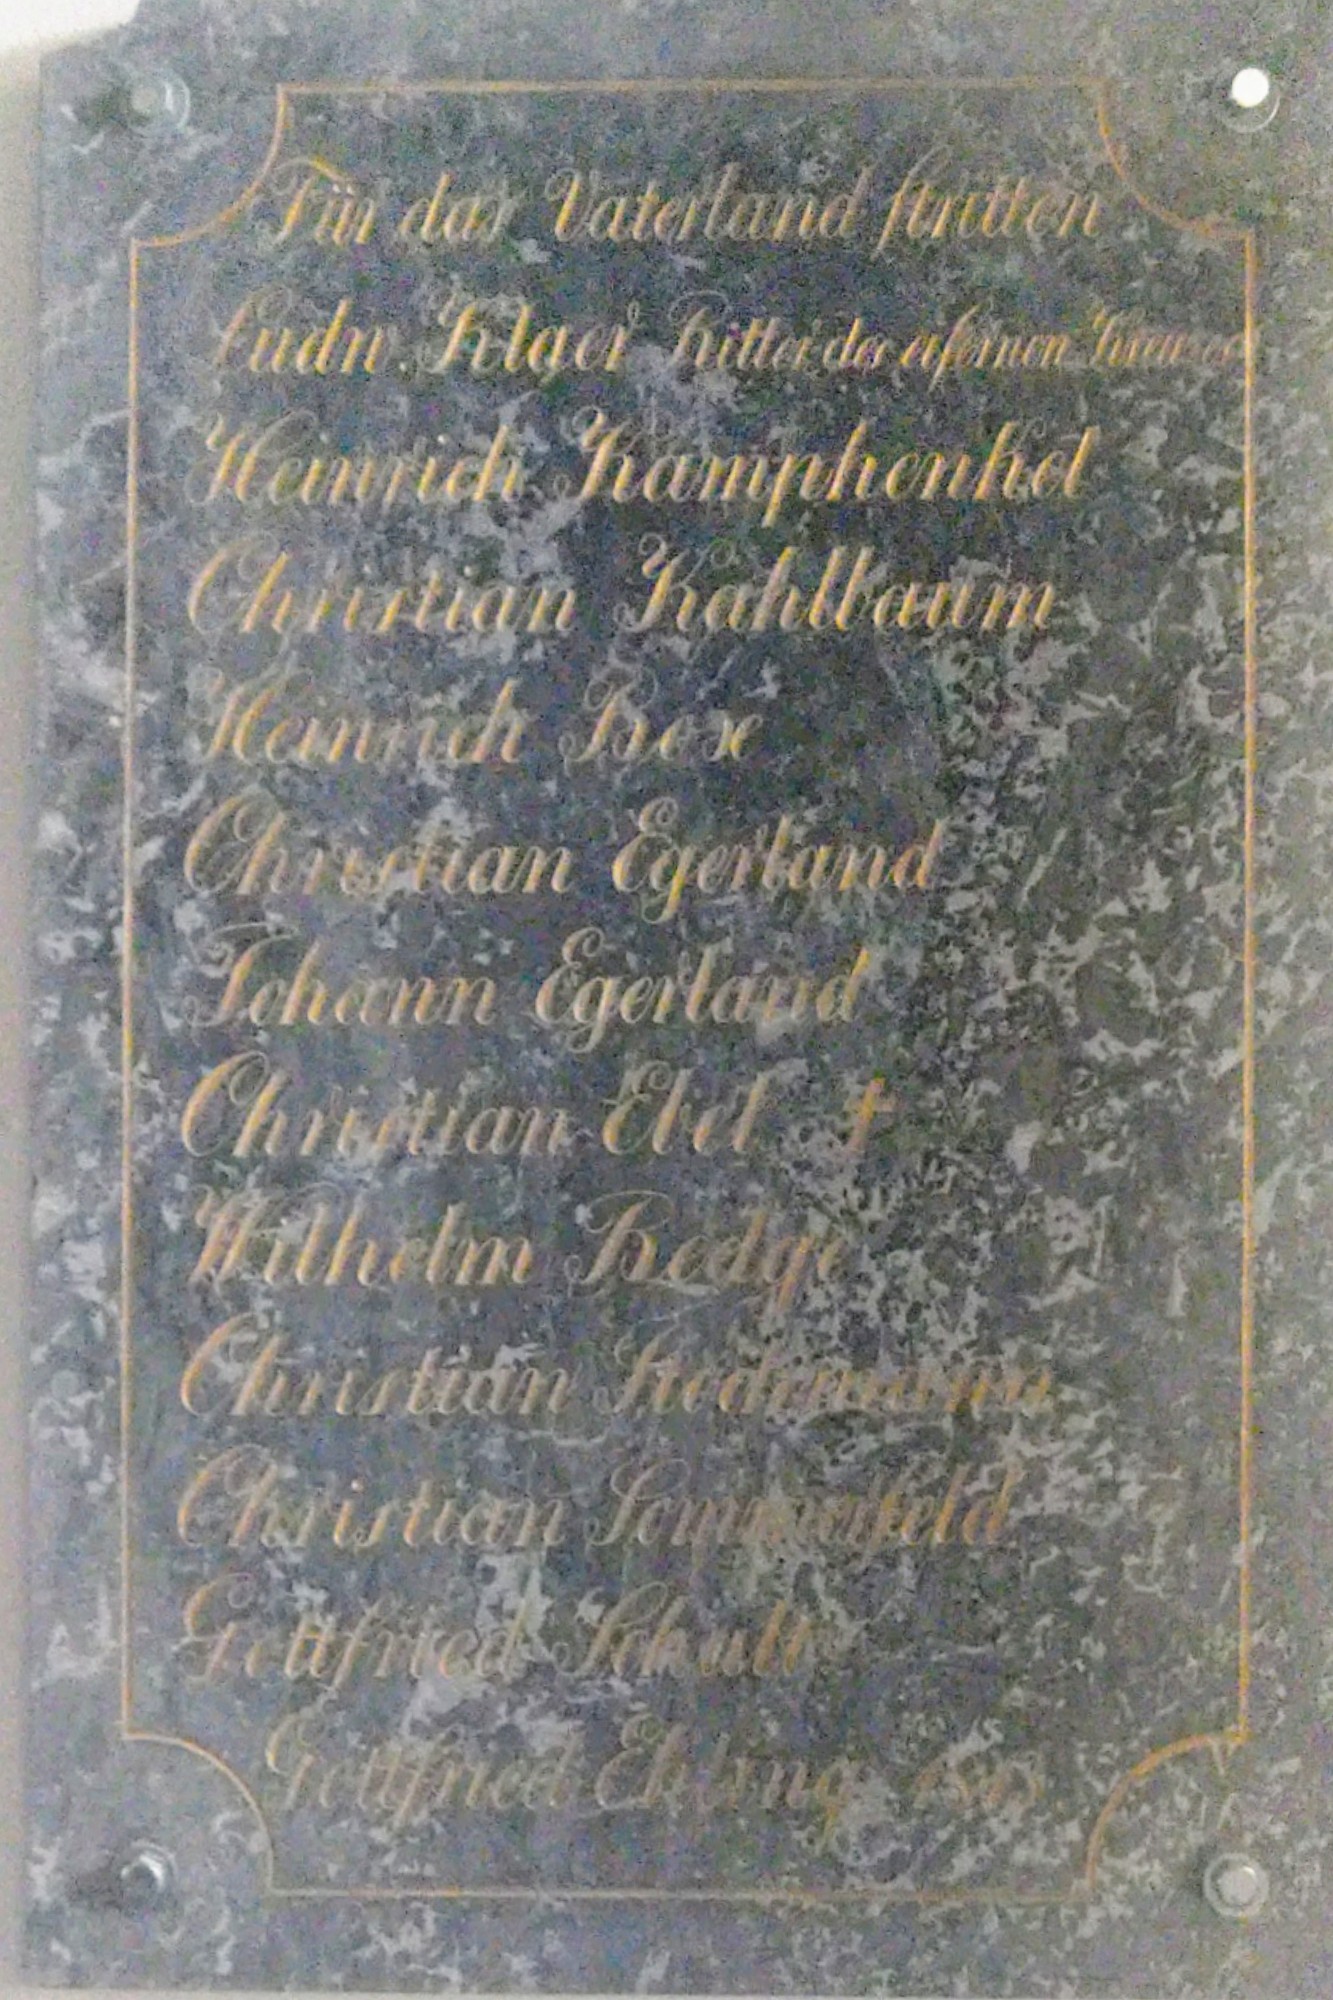 Für das Vaterland stritten
Ludw. Klger Ritter des eisernen Kreuzes
Heinrich Kamphenkel
Christian Kahlbaum
Heinrich Box
Christian Egerland
Johann Egerland
Christian Ebel †
Wilhelm Redge
Christian
Christian Sommerfeld
Gottfried Schult
Gottfried Ebling